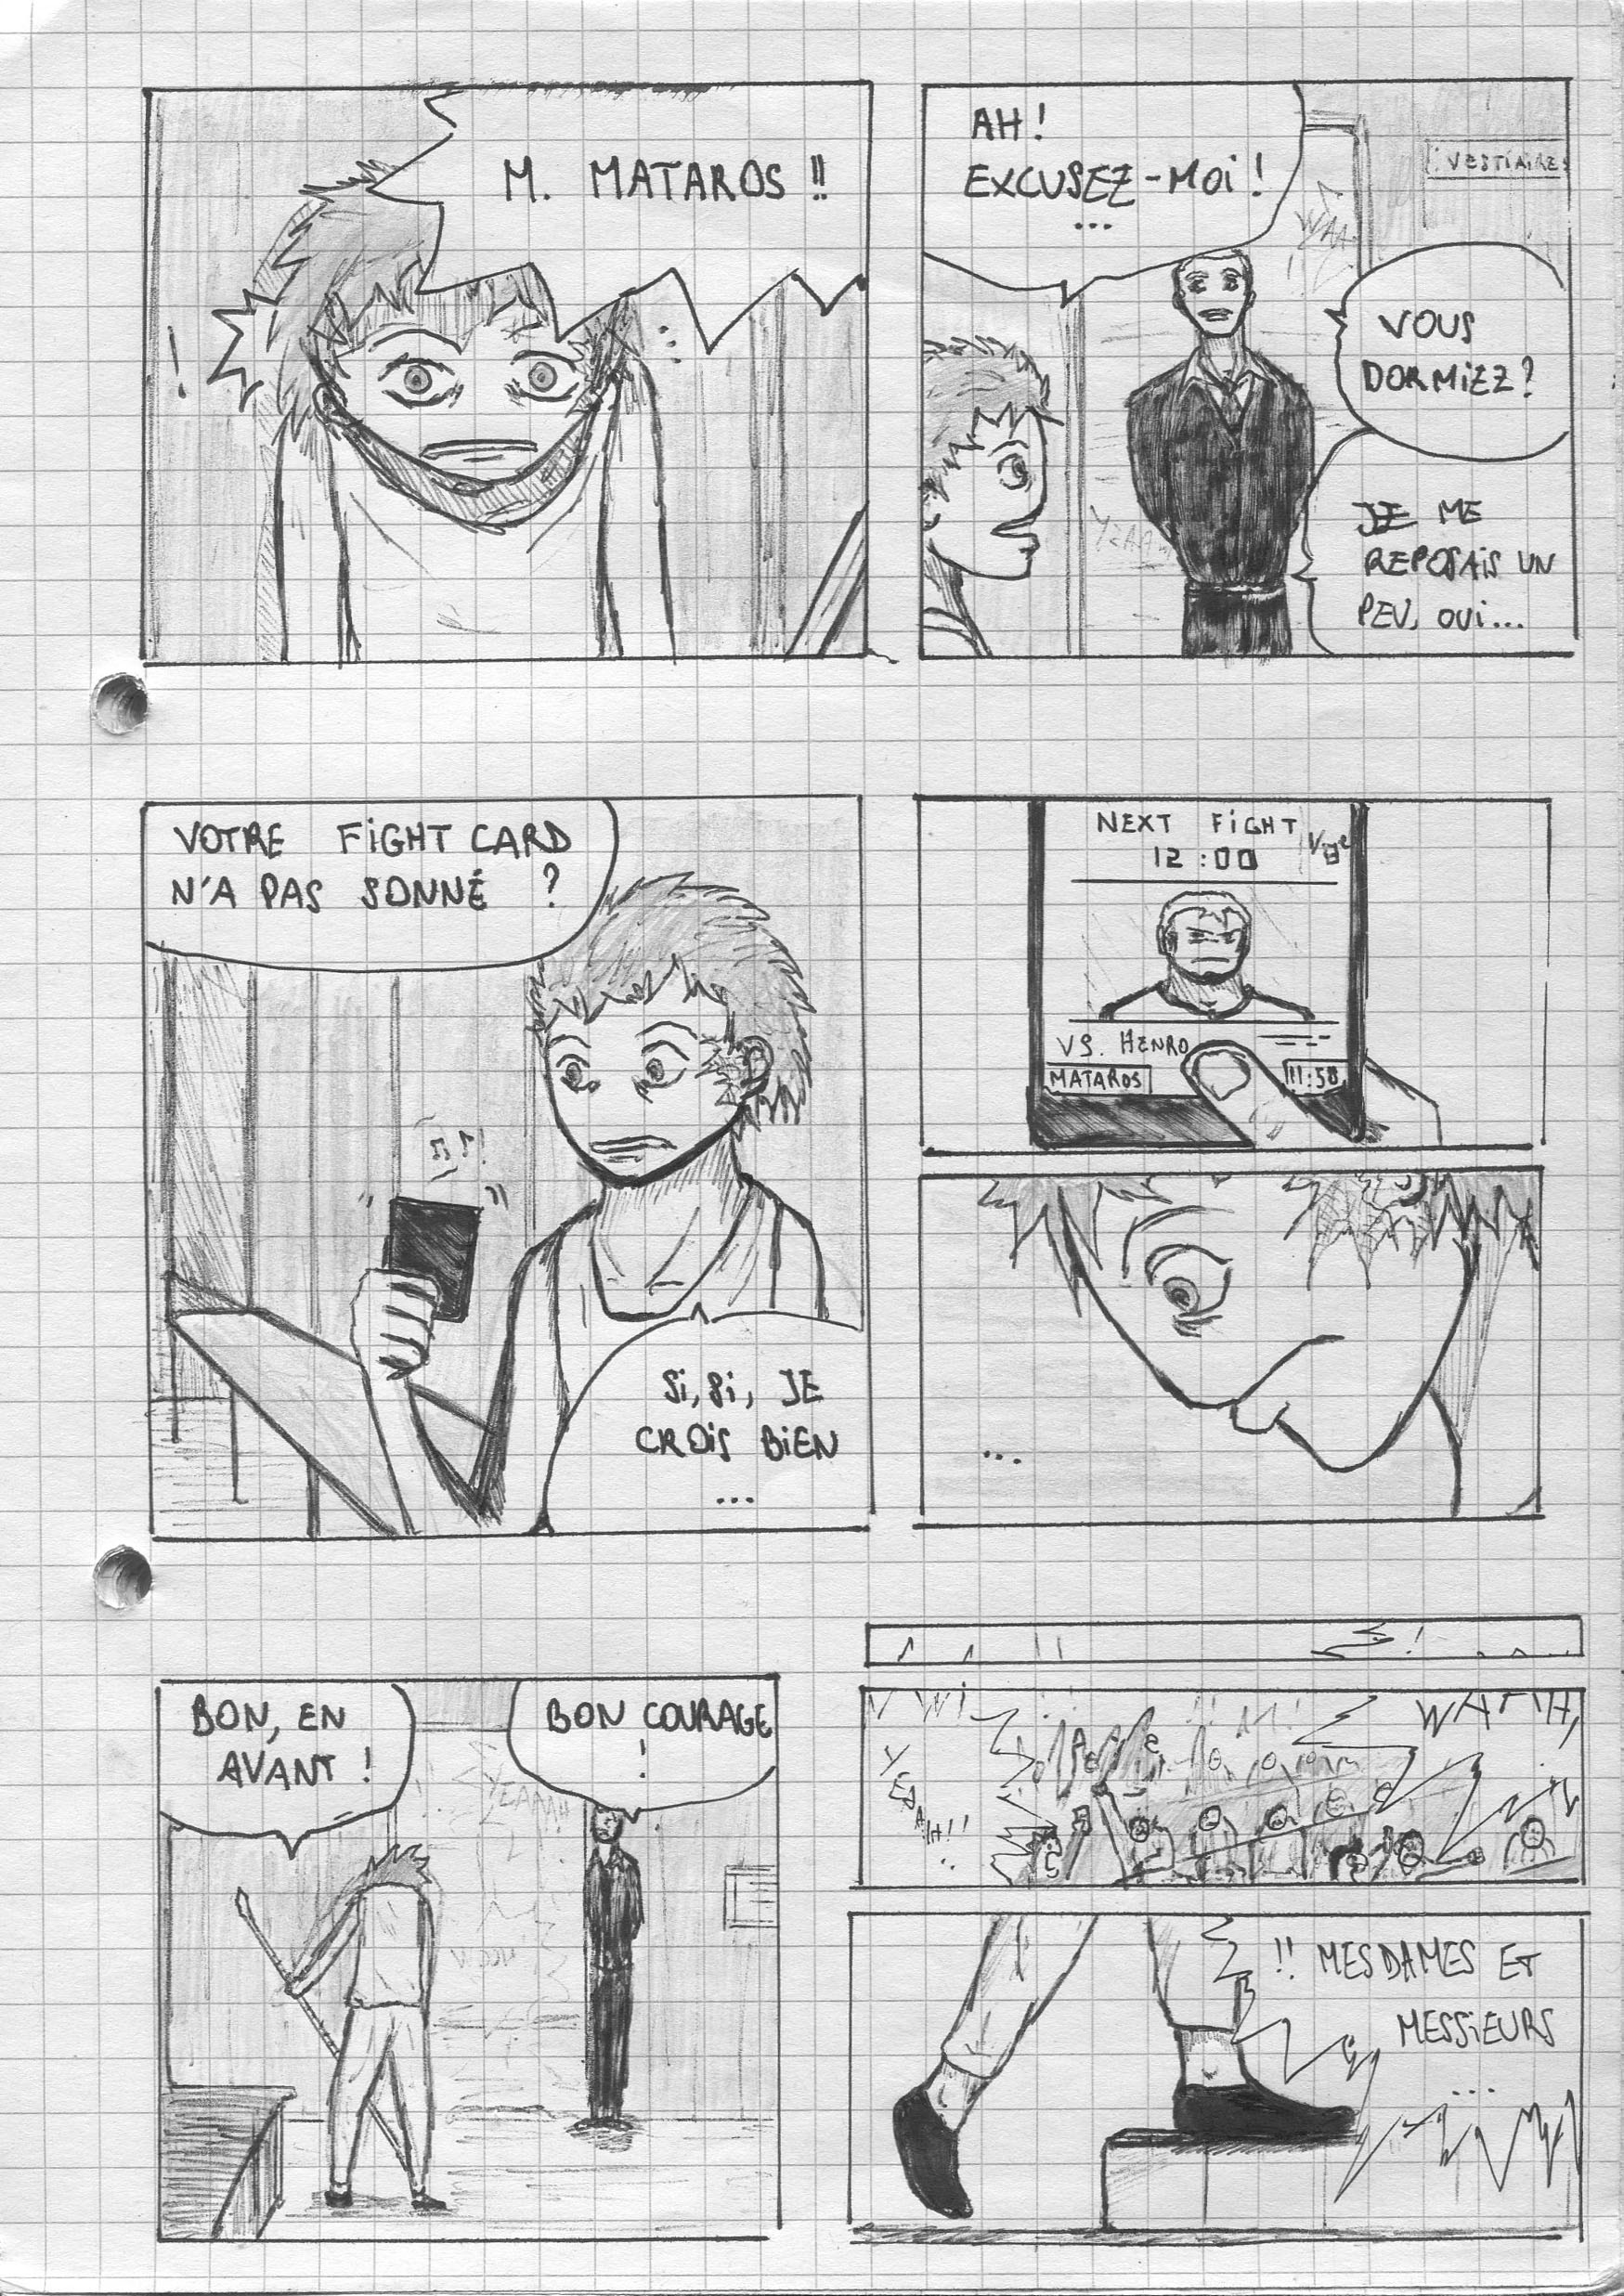 M. MATAROS !!
AH!
EXCUSEZ-MOI!
...
VESTIAIRES
WAA
VOUS
DORMIEZ?
YEAA
JE ME
REPOSAIS UN
PEU, OUI...
VOTRE FIGHT CARD
N'A PAS SONNÉ ?
SI, SI, JE
CROIS BIEN
...
NEXT FIGHT
12:00
VS. HENRO
MATAROS
11:58
...
BON, EN
AVANT !
BON COURAGE
!
YEAAHH
YEAAH!!
!! MESDAMES ET
MESSIEURS
...